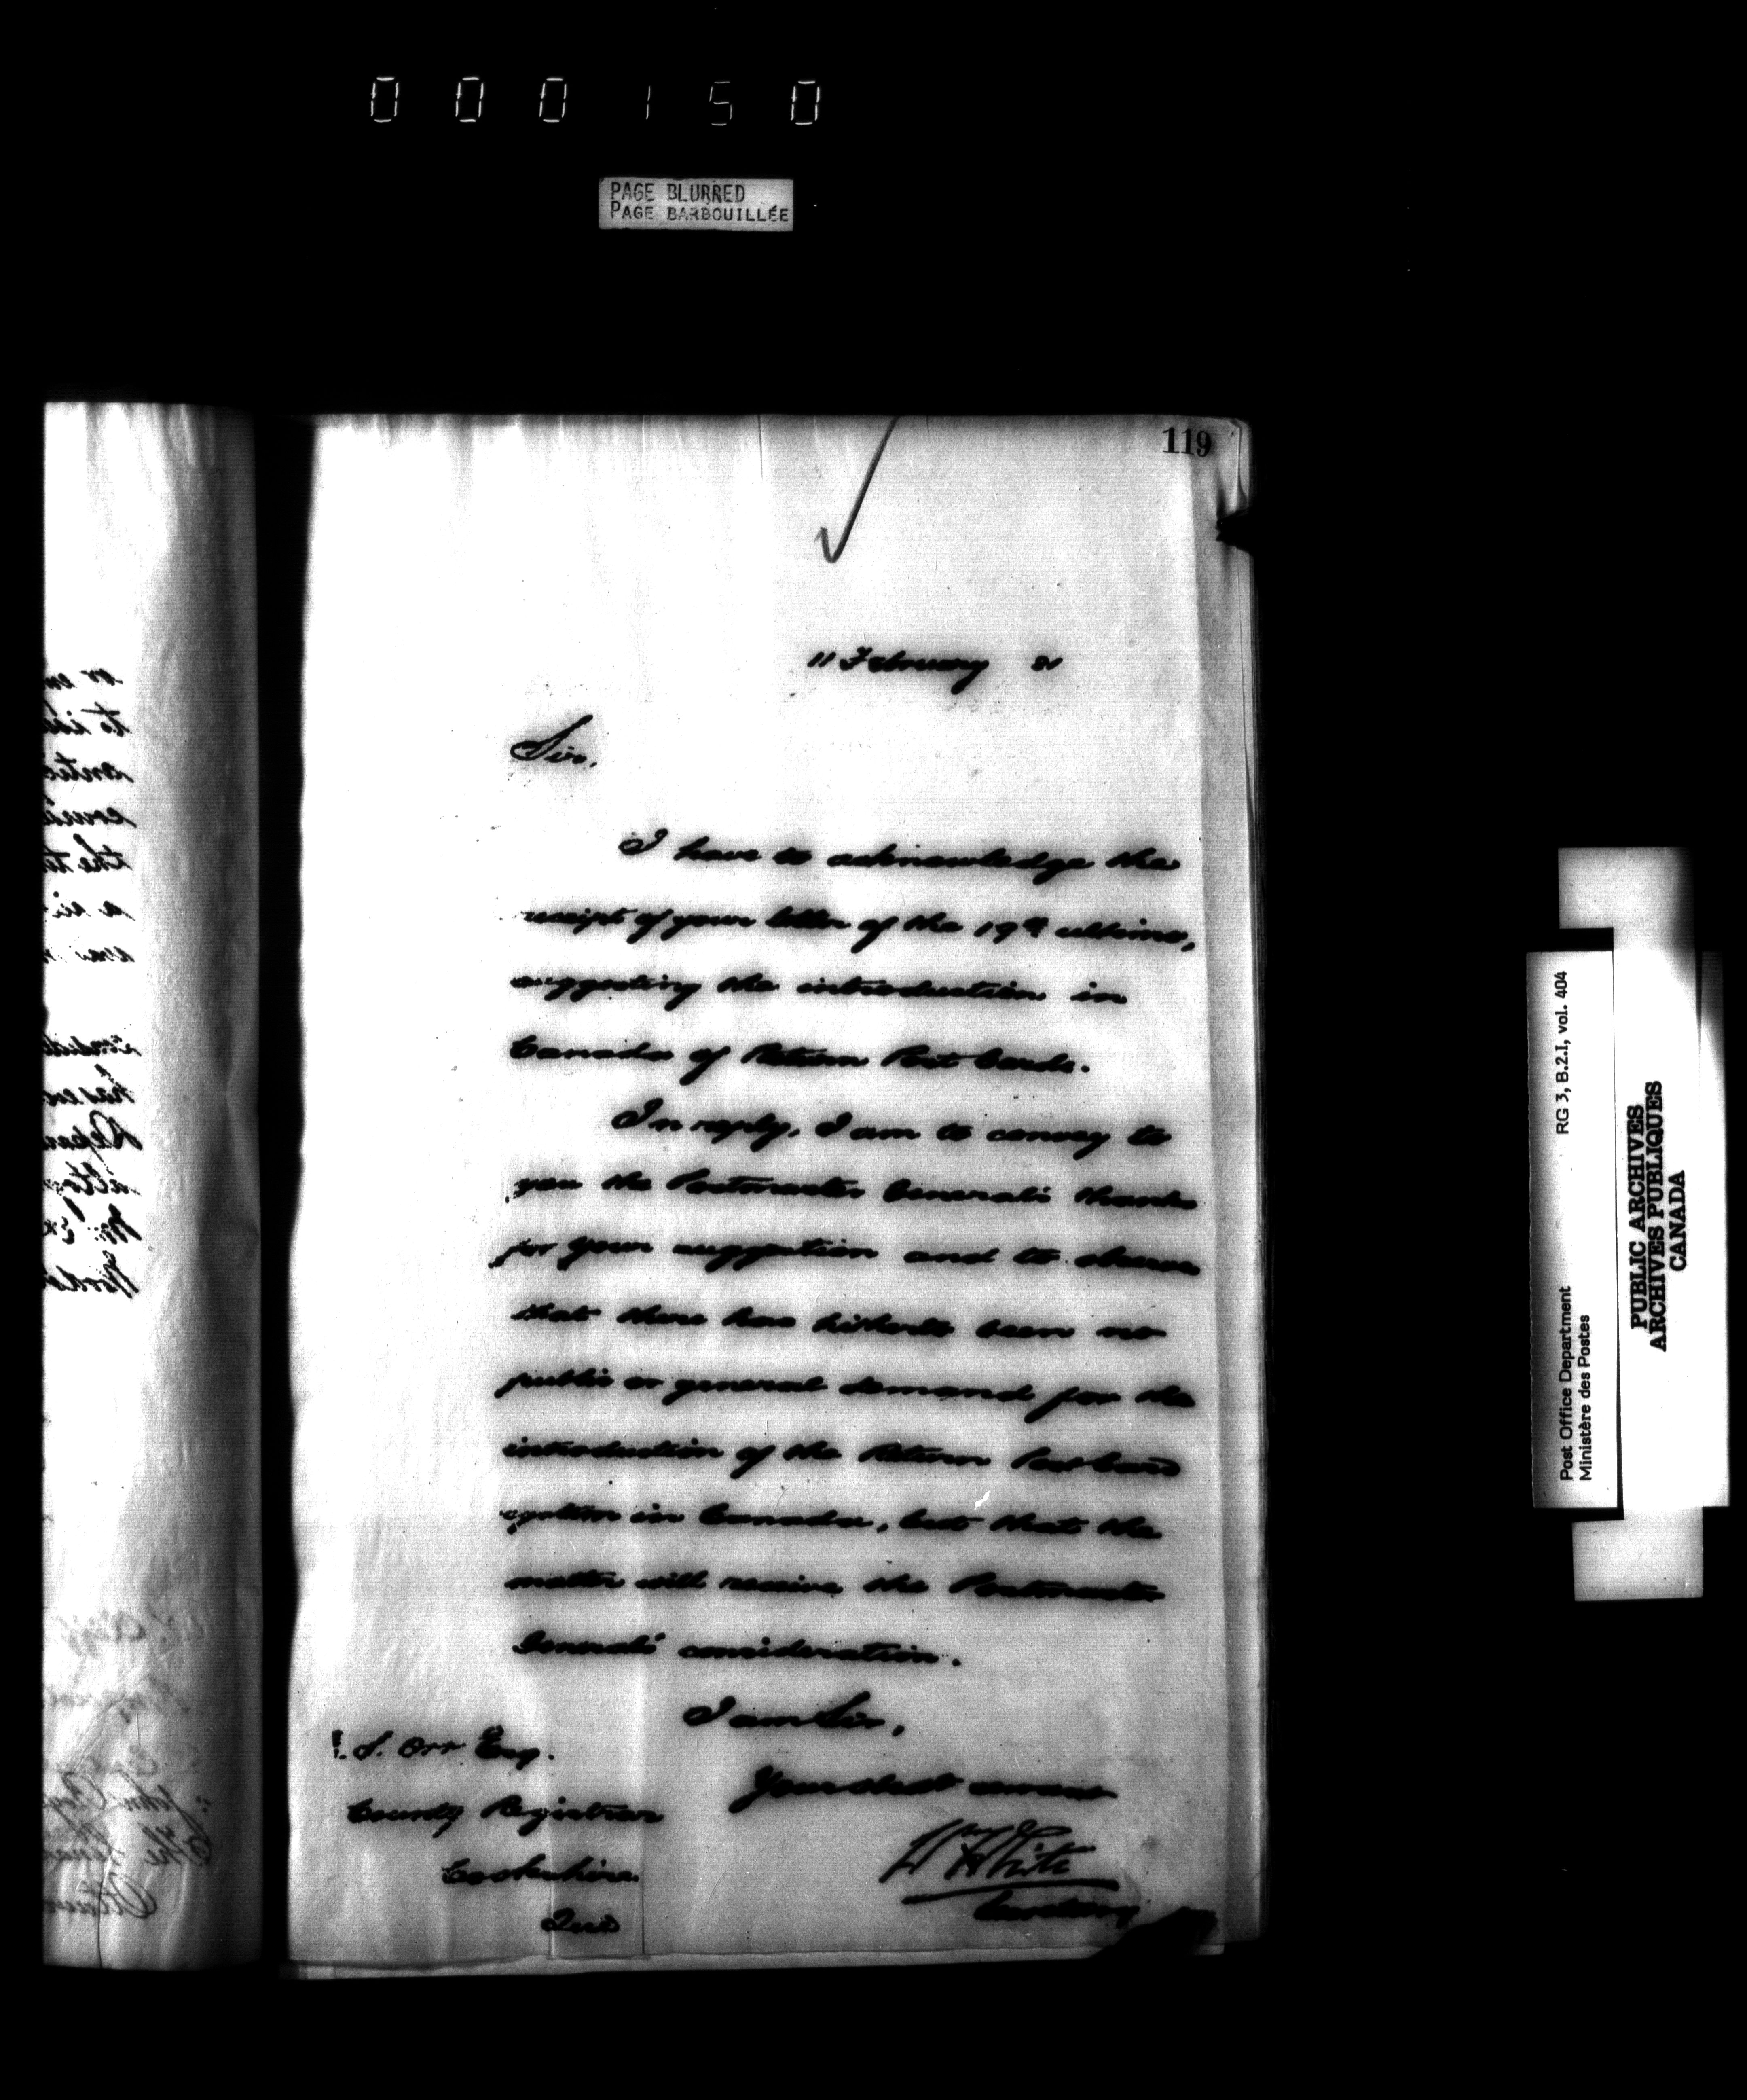 000150
PAGE BLURRED
PAGE BARBOUILLÉE
119
11 February 81
Sir,
I have to acknowledge the
receipt of your letter of the 19th ultimo,
suggesting the introduction in
Canada of Return Post Cards.
In reply, I am to convey to
you the Postmaster General's thanks
for your suggestion and to observe
that there has hitherto been no
public or general demand for the
introduction of the Return Post Card
system in Canada, but that the
matter will receive the Postmaster
General's consideration.
I am Sir,
Your obedt servant
W White
Secretary
S. Orr Esq.
County Registrar
Cookshire
Que
RG 3, B.2.I, vol. 404
Post Office Department
Ministère des Postes
PUBLIC ARCHIVES
ARCHIVES PUBLIQUES
CANADA